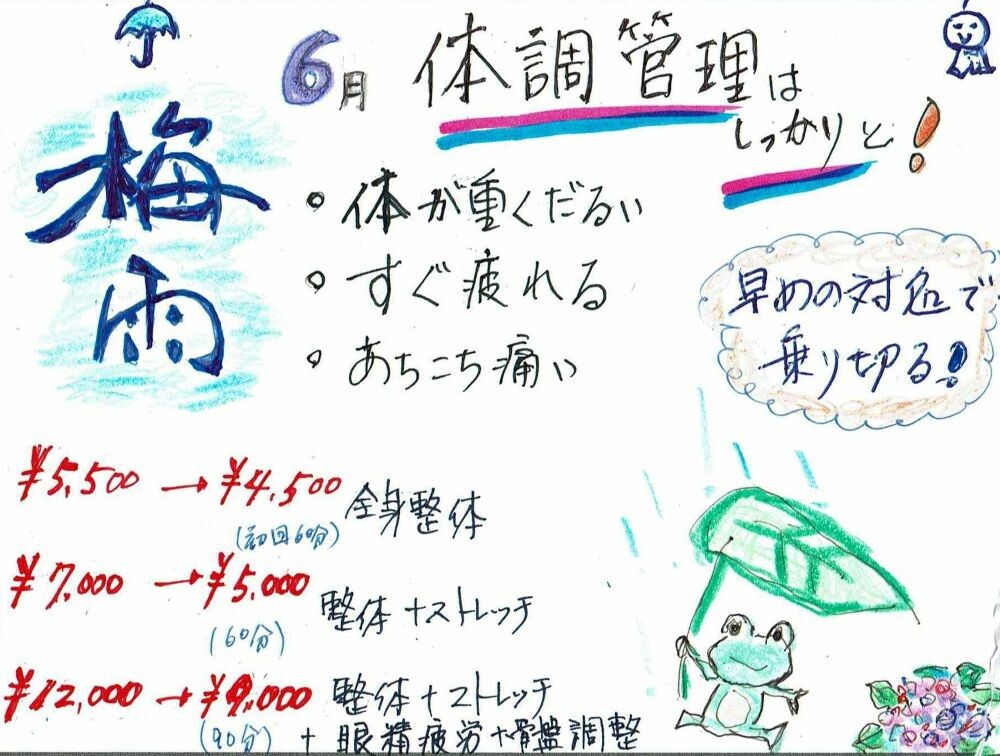 梅雨
6月 体調管理は
しっかりと！
• 体が重くだるい
• すぐ疲れる
• あちこち痛い
早めの対処で
乗り切る！
¥5,500 → ¥4,500 全身整体
(初回60分)
¥7,000 → ¥5,000 整体+ストレッチ
(60分)
¥12,000 → ¥9,000 整体+ストレッチ
(90分) +眼精疲労+骨盤調整